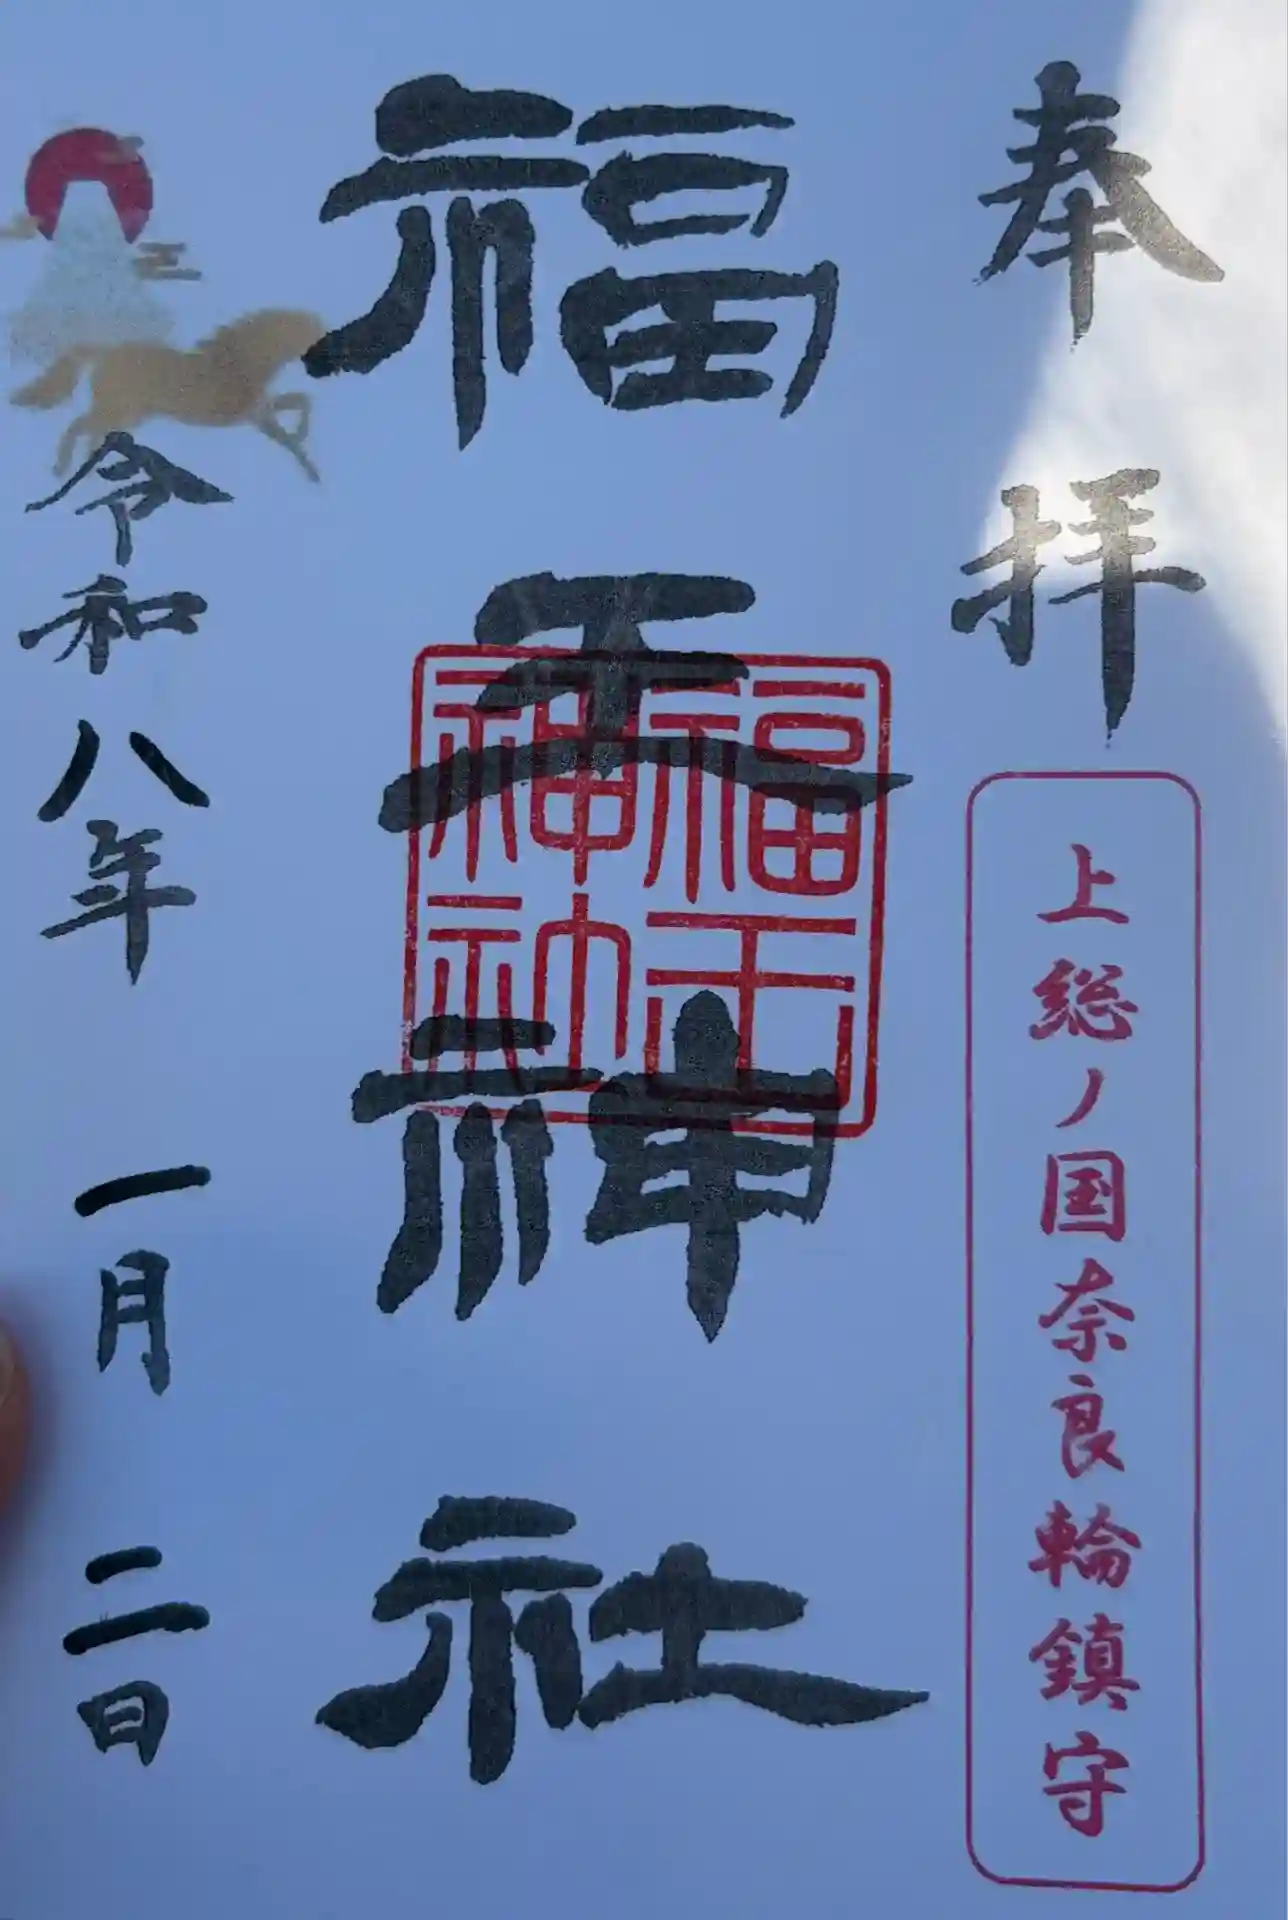 奉拝
上総ノ国奈良輪鎮守
福王神社
福王
神社
令和八年 一月 二日